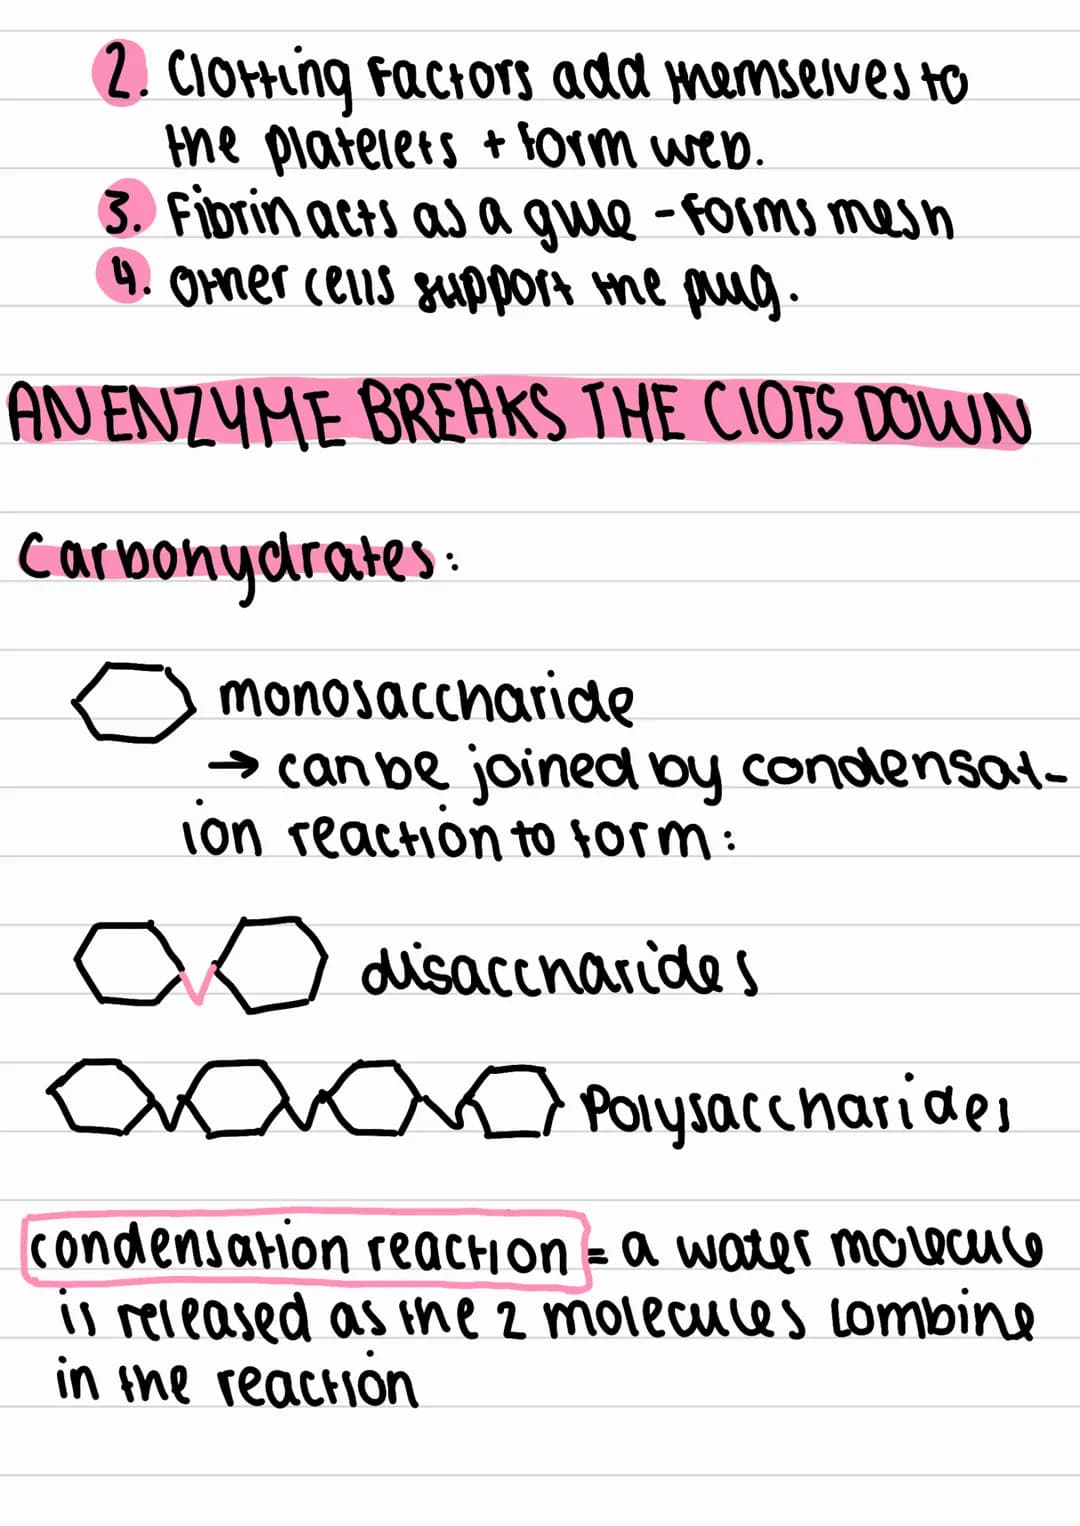 2. Clotting Factors add themselves to
the platelets + form web.
3. Fibrin acts as a glue - Forms mesh
4. Other cells support the plug.
AN ENZYME BREAKS THE ClOTS DOWN
Carbohydrates:
monosaccharide
→ can be joined by condensat-
ion reaction to form:
disaccharides
Polysaccharides
condensation reaction = a water molecule
is released as the 2 molecules combine
in the reaction